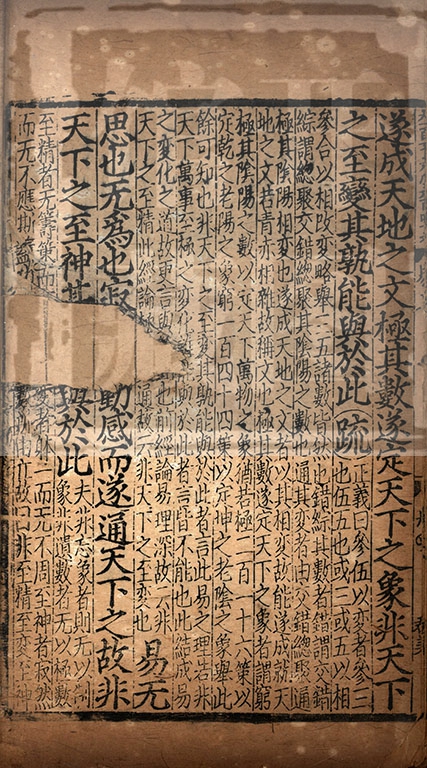 遂成天地之文極其數遂定天下之象非天下
之至變其孰能與於此疏
正義曰參伍以變者參三
也伍五也或三或五以相
參合以相改變略舉三五諸數皆然也錯綜其數者錯謂交錯
綜謂緫聚交錯緫聚其陰陽之數也通其變者由交錯緫聚通
極其陰陽相變也遂成天地之文者以其相變故能遂成就天
地之文若青赤相雜故稱文也極其數遂定天下之象者謂窮
極其陰陽之數以定天下萬物之象猶若極二百一十六策以
定乾之老陽之象窮一百四十四策以定坤之老陰之象舉此
餘可知也非天下之至變其孰能與於此者言此易之理若非
天下萬事至極之變化誰能與於此者言皆不能也此結成易
之變化之道故更言與也前經論易理深故云非
天下之至精此經論極通故云非天下之至變也
易无
思也无為也寂動感而遂通天下之故非
天下之至神其與於此
夫非忘象者則无以制
象非遺數者无以極數
至精者无籌策而變者體一而无不周至神者寂然
而无不應斯蓋故曰非至精至變至神